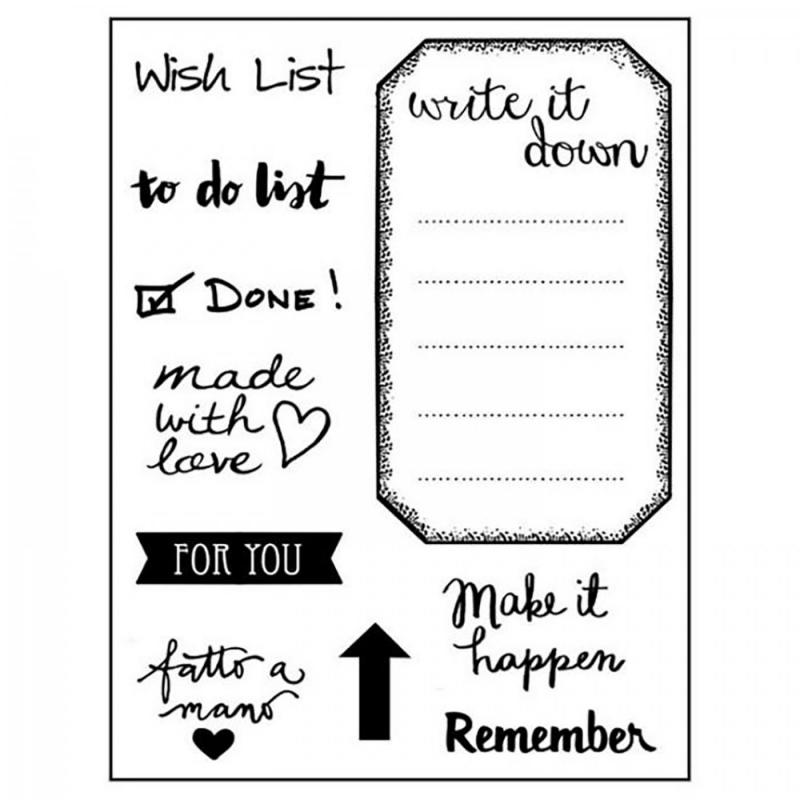 Wish List
to do list
DONE!
made
with
love
FOR YOU
fatto a
mano
write it
down
Make it
happen
Remember